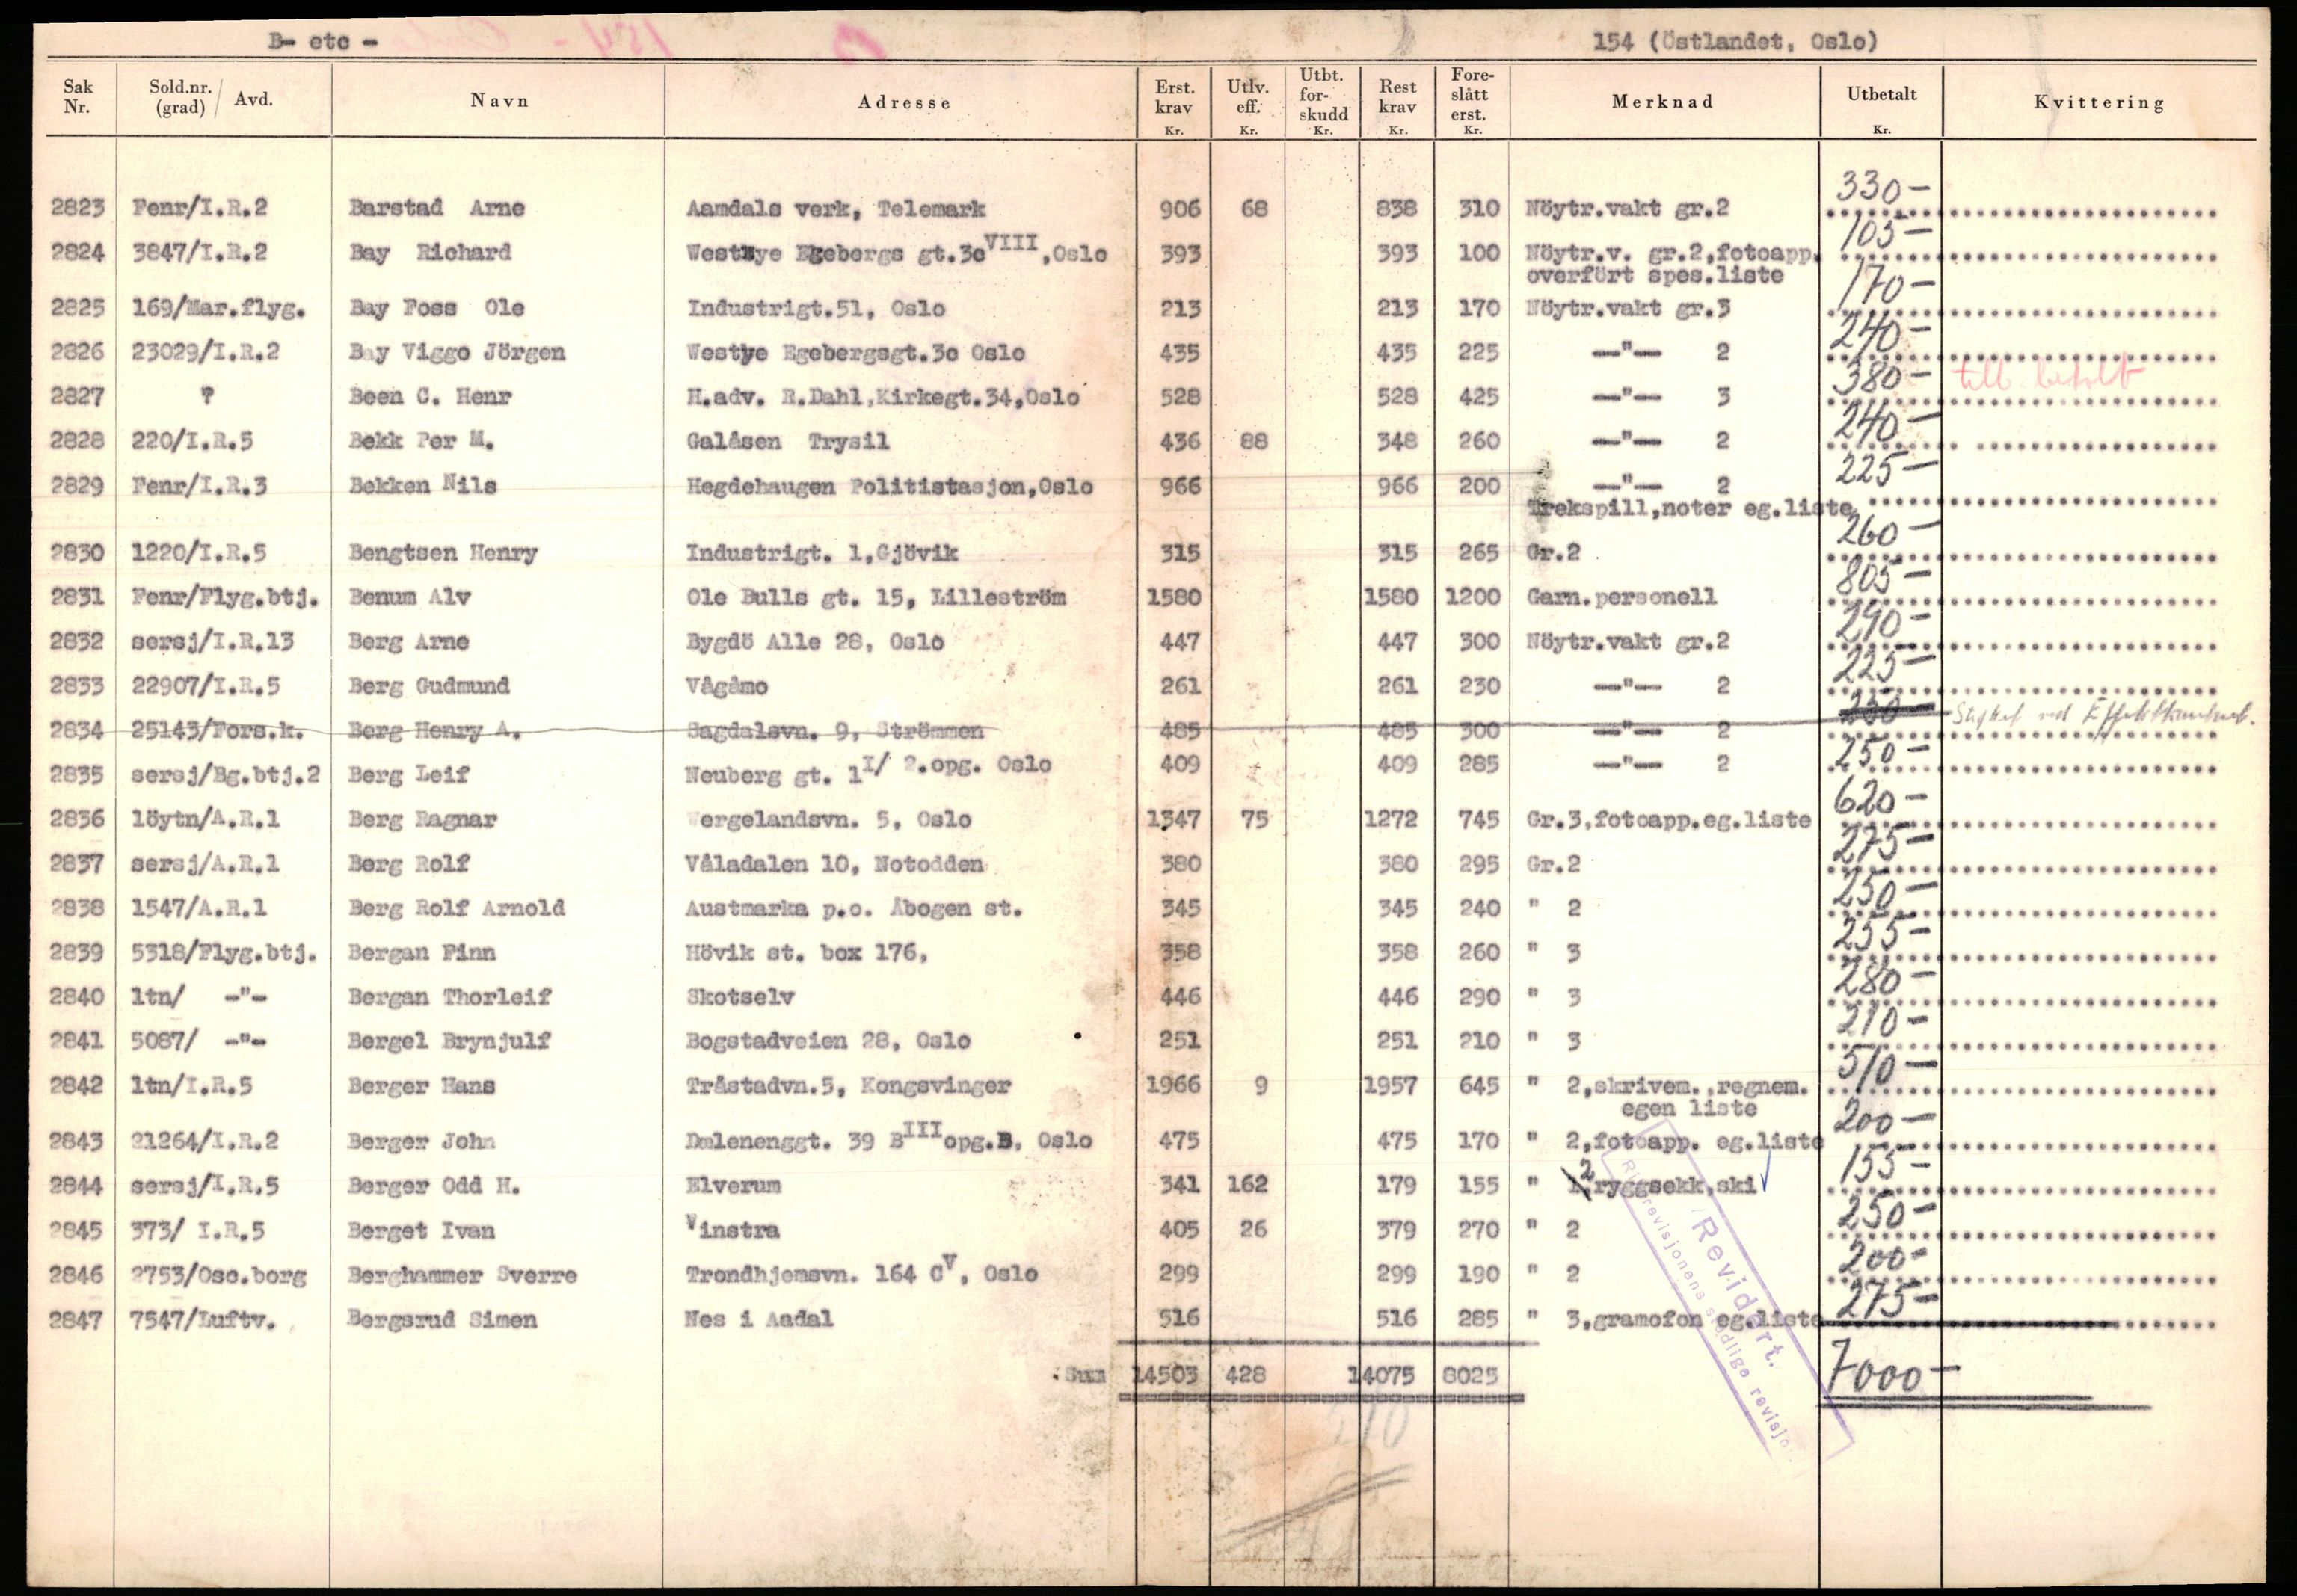 B- etc -
154 (Östlandet, Oslo)
Sak Nr. Sold.nr. (grad) / Avd. Navn Adresse Erst. krav Kr. Utlv. eff. Kr. Utbt. for-skudd Kr. Rest krav Kr. Fore-slått erst. Kr. Merknad Utbetalt Kr. Kvittering
2823 Fenr/I.R.2 Barstad Arne Aamdals verk, Telemark 906 68 838 310 Nöytr.vakt gr.2 330-
2824 3847/I.R.2 Bay Richard Westye Egebergs gt.3c VIII, Oslo 393 393 100 Nöytr.v. gr.2,fotoapp. 105-
overfört spes.liste
2825 169/Mar.flyg. Bay Foss Ole Industrigt.51, Oslo 213 213 170 Nöytr.vakt gr.3 170-
2826 23029/I.R.2 Bay Viggo Jörgen Westye Egebergsgt.3c Oslo 435 435 225 -"- 2 240-
2827 ? Been C. Henr H.adv. R.Dahl,Kirkegt.34,Oslo 528 528 425 -"- 3 380- tilb. betalt
2828 220/I.R.5 Bekk Per M. Galåsen Trysil 436 88 348 260 -"- 2 240-
2829 Fenr/I.R.3 Bekken Nils Hegdehaugen Politistasjon,Oslo 966 966 200 -"- 2 225-
Trekspill,noter eg.liste
2830 1220/I.R.5 Bengtsen Henry Industrigt. 1,Gjövik 315 315 265 Gr.2 260-
2831 Fenr/Flyg.btj. Benum Alv Ole Bulls gt. 15, Lilleström 1580 1580 1200 Garn.personell 805-
2832 sersj/I.R.13 Berg Arne Bygdö Alle 28, Oslo 447 447 300 Nöytr.vakt gr.2 290-
2833 22907/I.R.5 Berg Gudmund Vågåmo 261 261 230 -"- 2 225-
2834 25143/Fors.k. Berg Henry A. Sagdalsvn. 9, Strömmen 485 485 300 -"- 2 250
2835 sersj/Bg.btj.2 Berg Leif Neuberg gt. 1 I/ 2.opg. Oslo 409 409 285 -"- 2 250-
2836 löytn/A.R.1 Berg Ragnar Wergelandsvn. 5, Oslo 1347 75 1272 745 Gr.3,fotoapp.eg.liste 620-
2837 sersj/A.R.1 Berg Rolf Våladalen 10, Notodden 380 380 295 Gr.2 275-
2838 1547/A.R.1 Berg Rolf Arnold Austmarka p.o. Åbogen st. 345 345 240 " 2 250-
2839 5318/Flyg.btj. Bergan Finn Hövik st. box 176, 358 358 260 " 3 255-
2840 ltn/ -"- Bergan Thorleif Skotselv 446 446 290 " 3 280-
2841 5087/ -"- Bergel Brynjulf Bogstadveien 28, Oslo 251 251 210 " 3 210-
2842 ltn/I.R.5 Berger Hans Tråstadvn.5, Kongsvinger 1966 9 1957 645 " 2,skrivem.,regnem. 510-
egen liste
2843 21264/I.R.2 Berger John Dælenenggt. 39 B III opg.B, Oslo 475 475 170 " 2,fotoapp. eg.liste 200-
2844 sersj/I.R.5 Berger Odd H. Elverum 341 162 179 155 " 2 ryggsekk,ski 155-
2845 373/ I.R.5 Berget Ivan Vinstra 405 26 379 270 " 2 250-
2846 2753/Osc.borg Berghammer Sverre Trondhjemsvn. 164 C V, Oslo 299 299 190 " 2 200-
2847 7547/Luftv. Bergsrud Simen Nes i Aadal 516 516 285 " 3,gramofon eg.liste 275-
Sum 14503 428 14075 8025 7000-
Revidert.
Riksrevisjonens stedlige revisjo